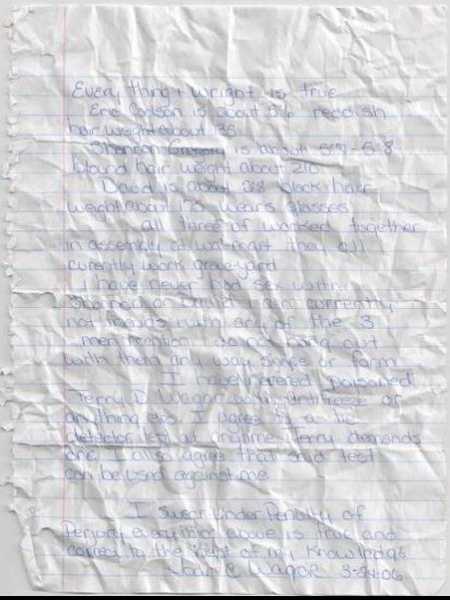 Every thing I wright is true
Eric Colson is about 5'6 reddish
hair weight about 135
Shannon is about 5'7 - 5'8
blound hair weight about 210
David is about 5'8 black hair
weight about 175 wears glasses
all three of worked together
in assembly at they all
curently work grave-yard
I have never had sex with
Shannon or David I am currently
not friends with any of the 3
men mention do not hang out
with them any way shape or form
I have never poisoned
Terry D Wagor with antifreeze or
anything else I agree to a lie
detector test at anytime Terry demands
one I also agree that said test
can be used against me
I swear under Penality of
Perjury everything above is true and
correct to the best of my knowledge
Wagor 3-24-06